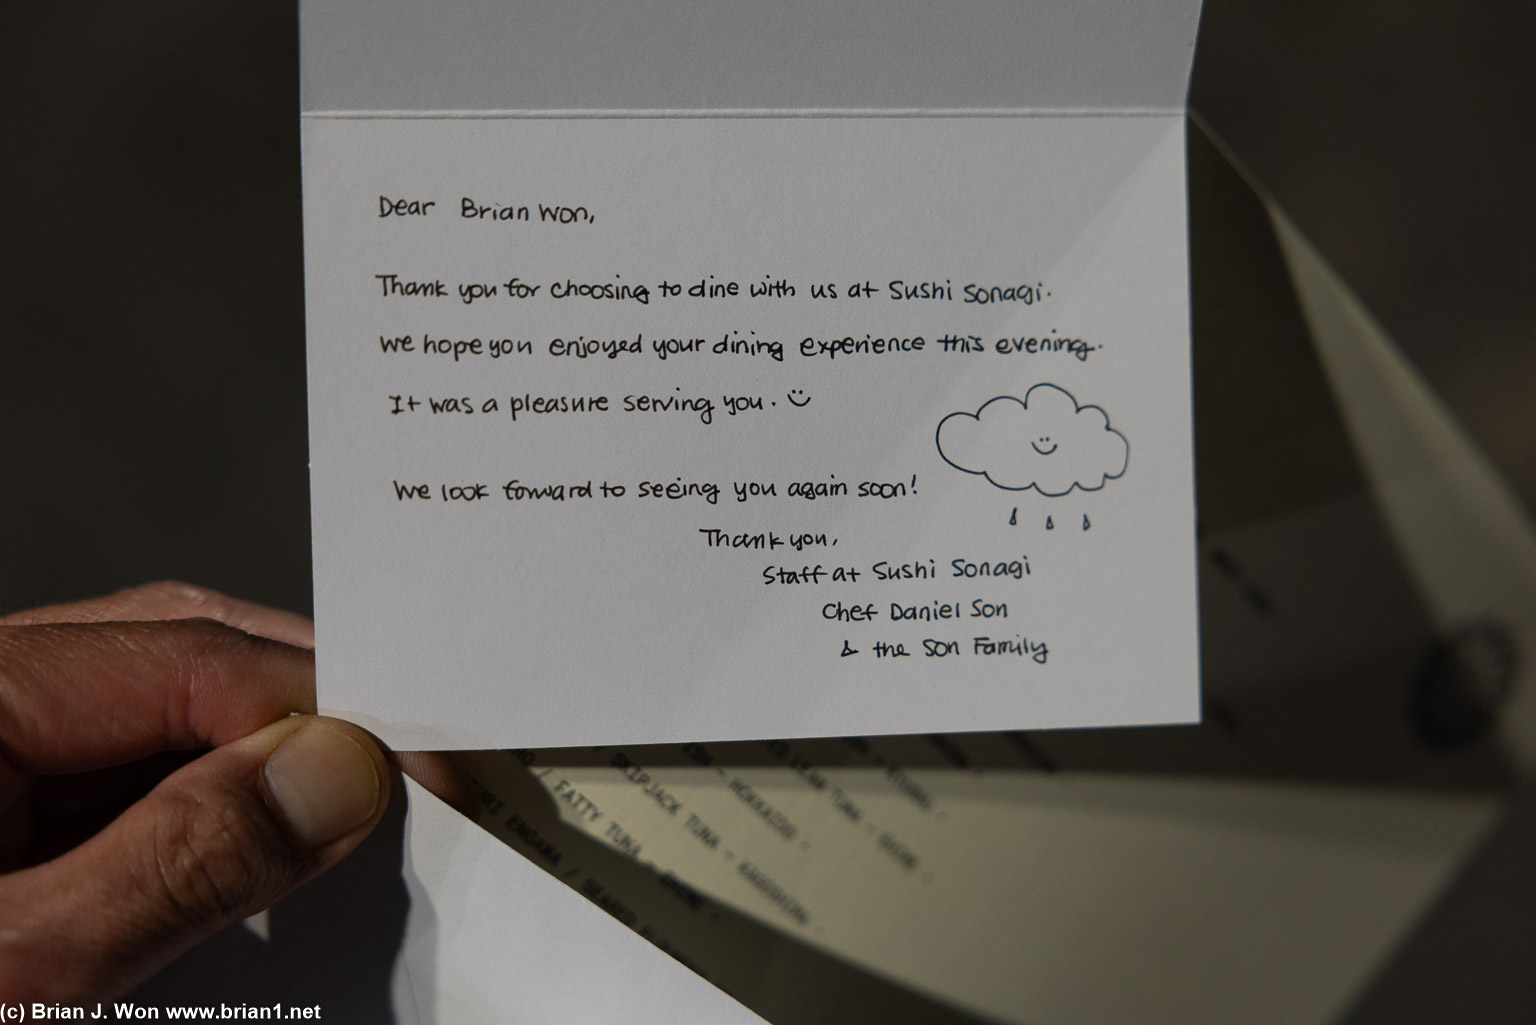 Dear Brian Won,
Thank you for choosing to dine with us at Sushi Sonagi.
We hope you enjoyed your dining experience this evening.
It was a pleasure serving you.
We look forward to seeing you again soon!
Thank you,
Staff at Sushi Sonagi
Chef Daniel Son
& the Son Family
SKIPJACK TUNA - KAGOSHIMA -
/ FATTY TUNA -
ENGAWA / SEARED
- HOKKAIDO -
TUNA -
(c) Brian J. Won www.brian1.net